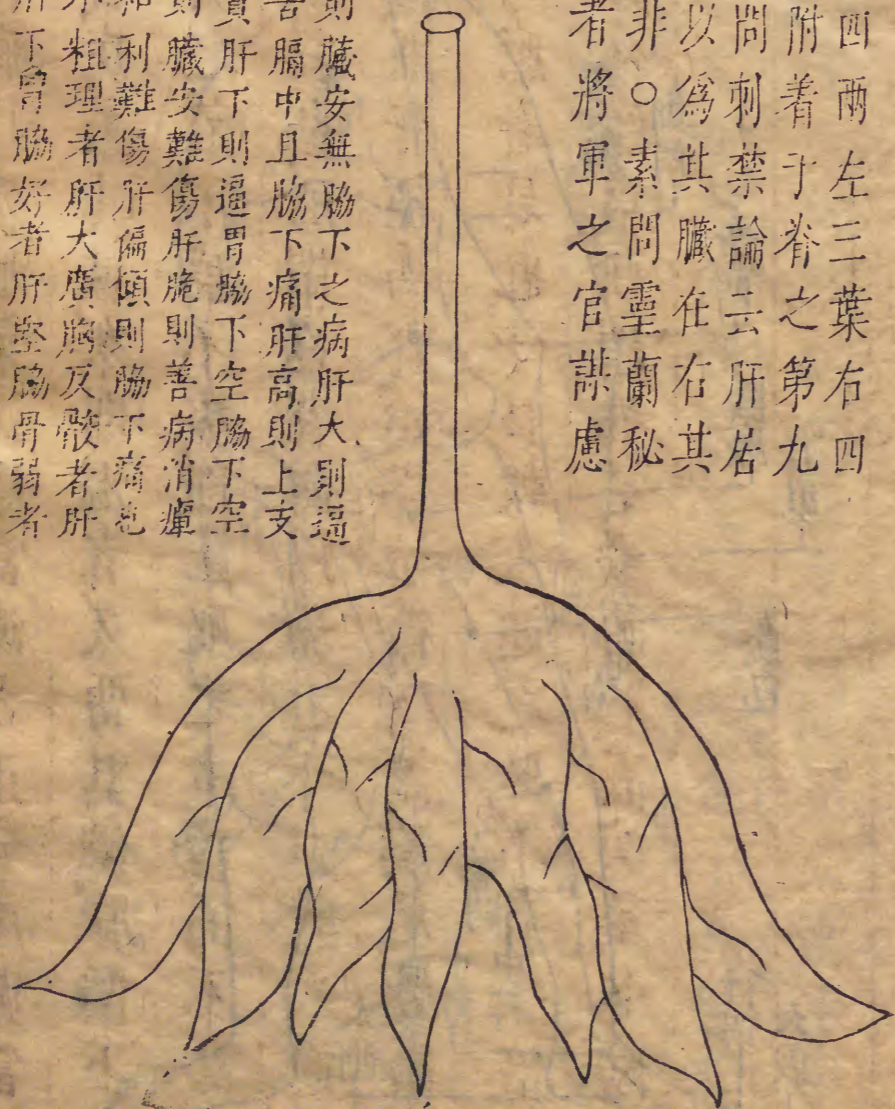 四兩左三葉右四
附着于脊之第九
問刺禁論云肝居
以為其臟在右其
非○素問靈蘭秘
者將軍之官謀慮
則臟安無脇下之病肝大則逼
膈中且脇下痛肝高則上支
賁肝下則逼胃脇下空脇下空
則臟安難傷肝脆則善病消癉
和利難傷肝偏傾則脇下痛也
小粗理者肝大廣胸反骹者肝
下胃脇好者肝堅脇骨弱者